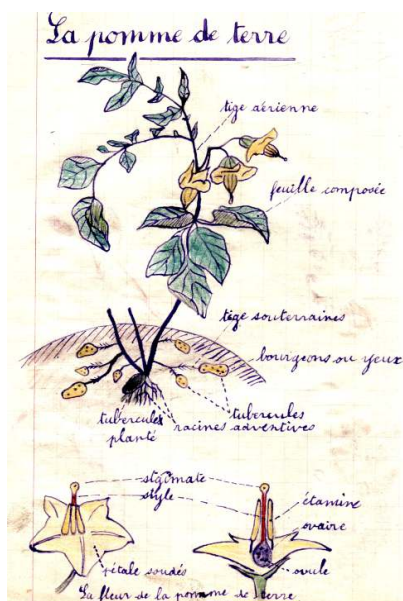 La pomme de terre
tige aérienne
feuille composée
tige souterraines
bourgeons ou yeux
tubercules
planté
racines adventives
tubercules
stgimate
style
étamine
ovaire
pétale soudés
ovule
La fleur de la pomme de terre